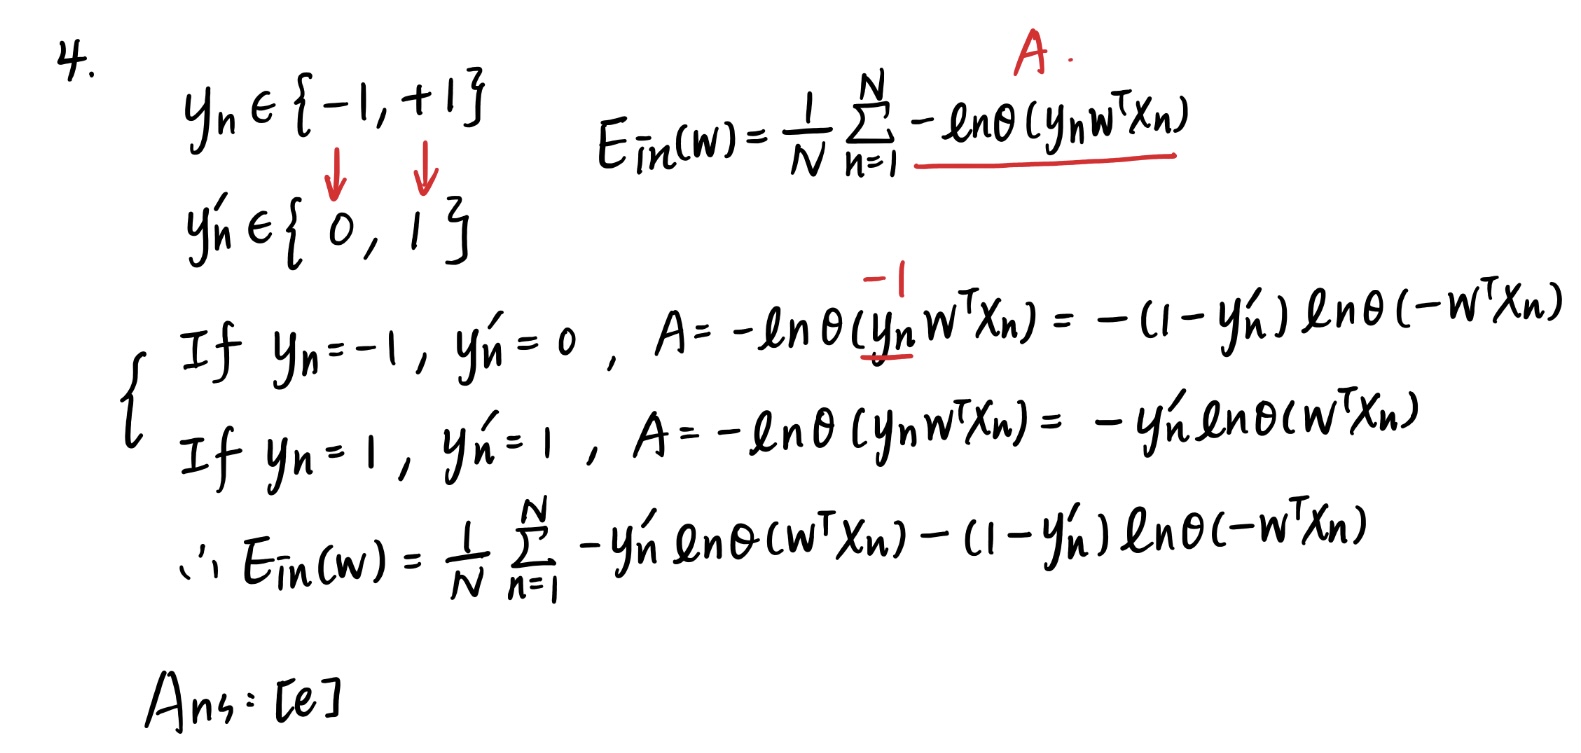 4.
A.
yₙ ∈ {-1, +1}   E_in(w) = 1/N Σ_{n=1}^{N} -lnθ(yₙwᵀxₙ)
↓ ↓
yₙ′ ∈ {0, 1}
-1
{ If yₙ = -1, yₙ′ = 0, A = -lnθ(yₙwᵀxₙ) = -(1-yₙ′)lnθ(-wᵀxₙ)
If yₙ = 1, yₙ′ = 1, A = -lnθ(yₙwᵀxₙ) = -yₙ′lnθ(wᵀxₙ)
∴ E_in(w) = 1/N Σ_{n=1}^{N} -yₙ′lnθ(wᵀxₙ) - (1-yₙ′)lnθ(-wᵀxₙ)
Ans: [e]